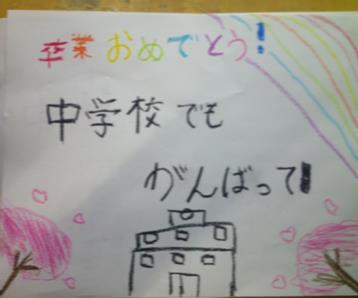 卒業おめでとう!
中学校でも
がんばって!